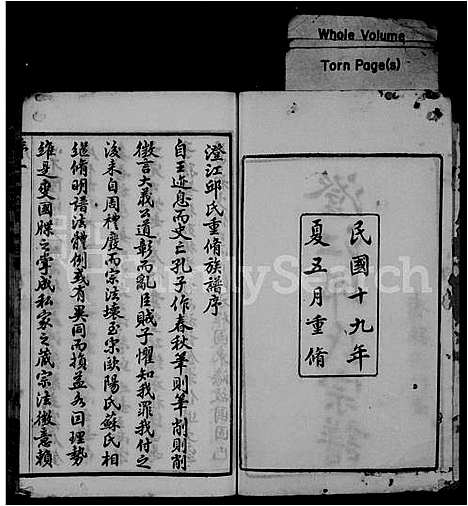 Whole Volume
Torn Page(s)
民國十九年
夏五月重脩
澄江邱氏重脩族譜序
自王迹息而史亡孔子作春秋筆則筆削則削
微言大義公道彰而亂臣賊子懼知我罪我付之
後來自周禮廢而宗法壞至宋歐陽氏蘇氏相
繼脩明譜法體例或有異同而損益各因理勢
維是變國牒之掌成私家之藏宗法微意賴
FamilySearch